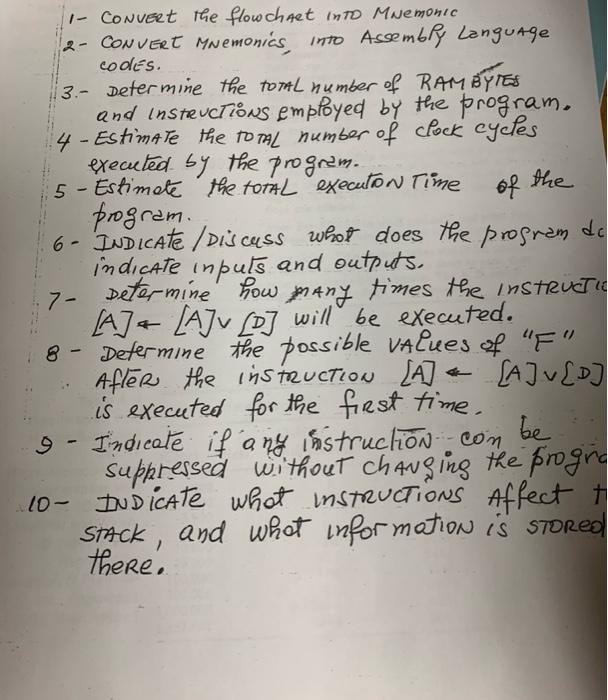 1- CONVERT the flowchart INTO MNemonic
2- CONVERT MNemonics, INTO Assembly Language
codes.
3.- Determine the TOTAL number of RAM BYTES
and INSTRUCTIONS employed by the program.
4 - Estimate the TOTAL number of clock cycles
executed by the program.
5 - Estimate the TOTAL execution Time of the
program.
6- INDICATE / Discuss what does the program do
indicate inputs and outputs.
7- Determine how many times the INSTRUCTIO
[A] ← [A] ∨ [D] will be executed.
8 - Determine the possible VALUES of "F"
AFTER the INSTRUCTION [A] ← [A] ∨ [D]
is executed for the first time.
9 - Indicate if any instruction can be
suppressed without changing the progra
10- INDICATE what INSTRUCTIONS Affect t
STACK, and what information is STORED
there.